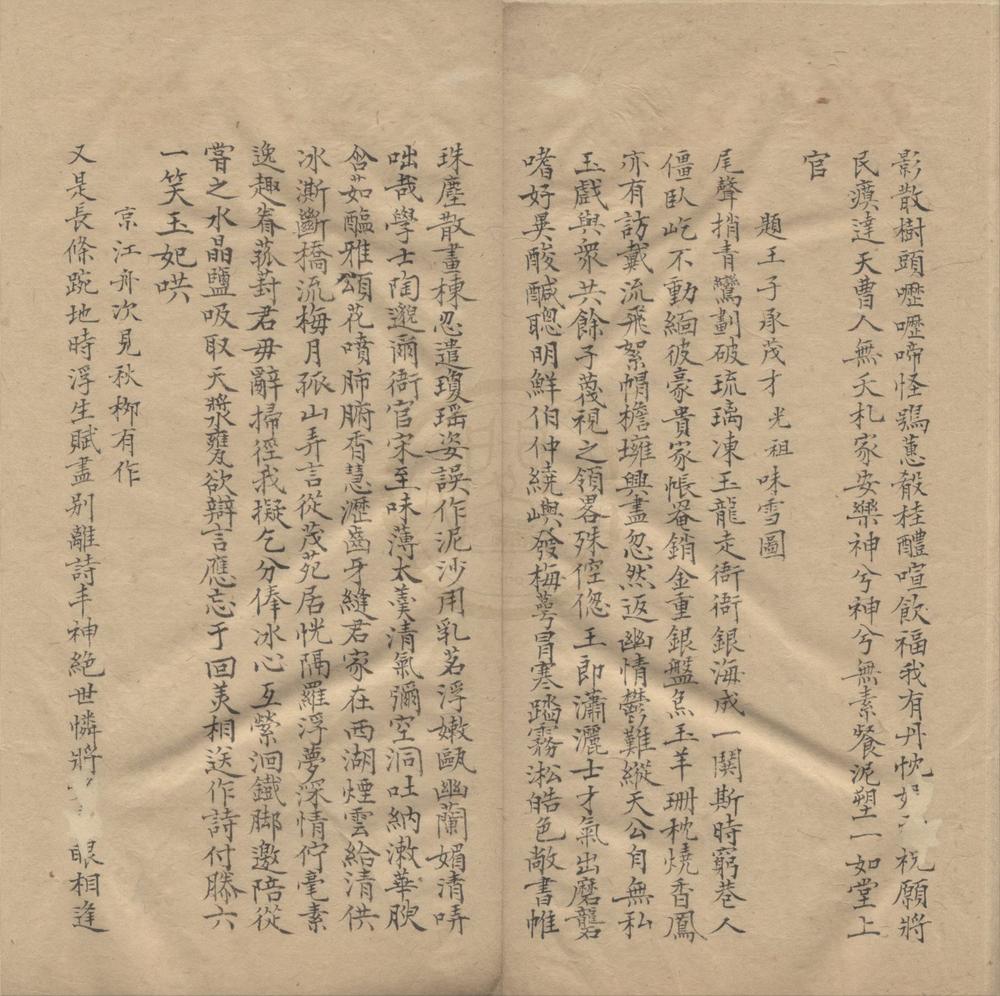 影散樹頭嚦嚦啼怪鴞蕙殽桂醴喧飲福我有丹忱祝願將
民瘼達天曹人無夭札家安樂神兮神兮無素餐泥塑一如堂上
官
題王子承茂才光祖味雪圖
尾聲捎青鸞劃破琉璃凍玉龍走衙衙銀海成一鬨斯時窮巷人
僵臥屹不動緬彼豪貴家帳畧銷金重銀盤炰玉羊珊枕燒香鳳
亦有訪戴流飛絮帽檐擁興盡忽然返幽情鬱難縱天公自無私
玉戲與衆共餘子蔑視之領畧殊倥傯王郎瀟灑士才氣出磨礱
嗜好異酸醎聰明鮮伯仲繞嶼發梅萼冒寒踏霧淞皓色敞書帷
珠塵散畫棟忍遣瓊瑶姿誤作泥沙用乳茗浮嫩甌幽蘭媚清哢
咄哉學士陶邈爾衙官宋至味薄太羹清氣彌空洞吐納漱華腴
含茹醞雅頌花噴肺腑香慧瀝齒牙縫君家在西湖煙雲給清供
冰澌斷橋流梅月孤山弄言從茂苑居恍隔羅浮夢深情佇毫素
逸趣眷菰葑君毋辭掃徑我擬乞分俸冰心互縈洄鐵脚邀陪從
嘗之水晶鹽吸取天漿甕欲辯言應忘于回美相送作詩付滕六
一笑玉妃哄
京江舟次見秋栁有作
又是長條踠地時浮生賦盡别離詩丰神絶世憐將眼相逢